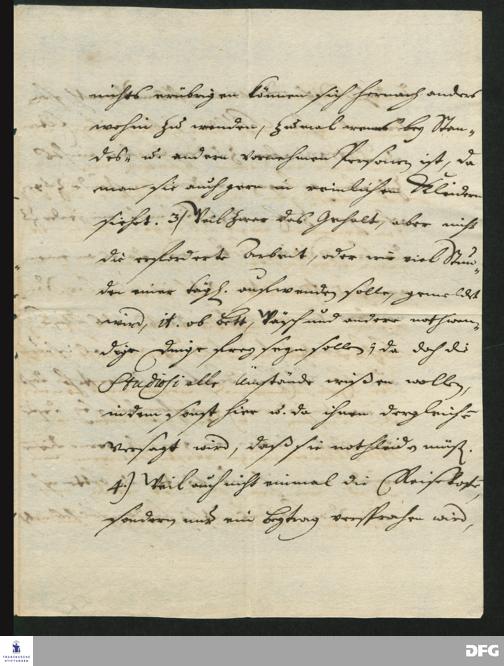 nichts erübrigen können sich hernach anders
wohin zu wenden, zumal wenns bey Stan-
des- u. andern vornehmen Personen ist, da
man sie auch gern in reinlichen Kleidern
siehet. 3) Weil zwar das Gehalt, aber nicht
die erforderte Arbeit, oder wie viel Stun-
den einer tägl. aufwenden solle, gemeldet
wird, it. ob bett, Wäsch und andere nothwen-
dige Dinge frey seyn sollen; da doch die
Studiosi alle Umstände wißen wollen,
indem sonst hier u. da ihnen dergleichen
versagt wird, daß sie nothleiden müß.
4.) Weil auch nicht einmal die Reisekosten,
sondern nur ein beytrag versprochen wird,
FRANCKESCHE
STIFTUNGEN
DFG